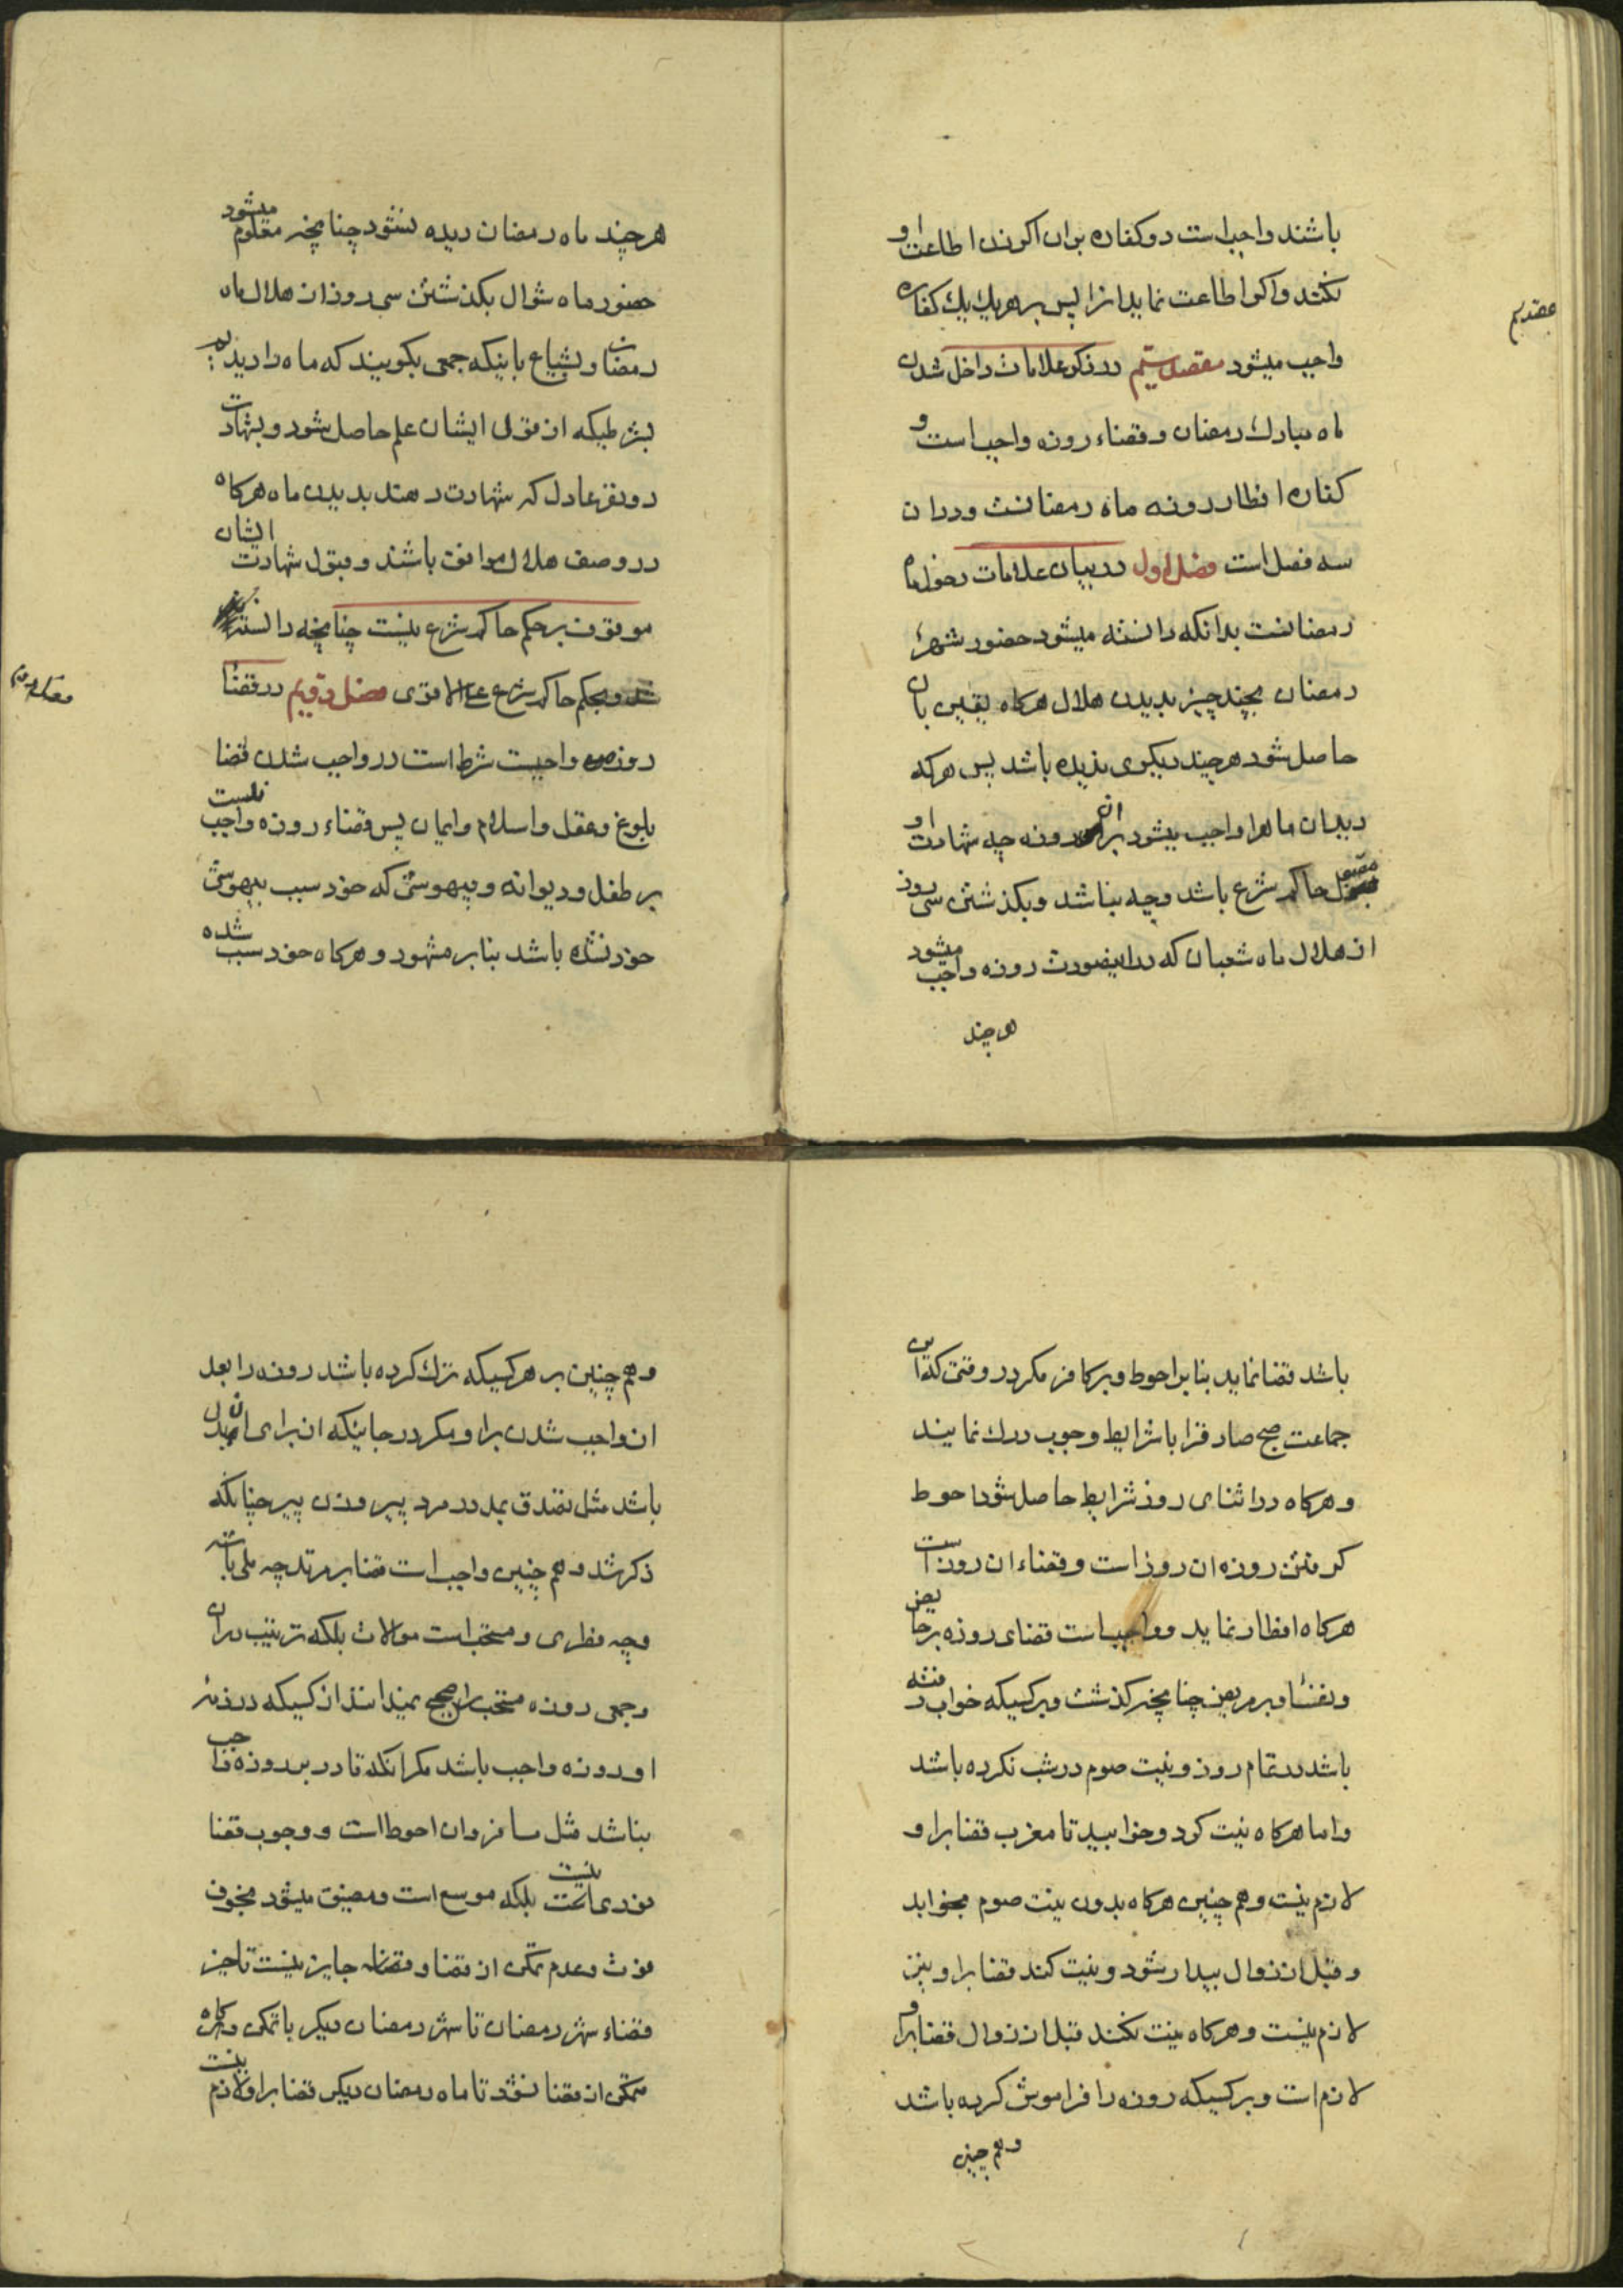 باشند واجب است دو کفاره بر ان اکر زن اطاعت او
نکند و اکر اطاعت نماید انزا پس بر هر یك یك کفاره
واجب میشود مقصد سیم در ذکر علامات داخل شدن
ماه مبارك رمضان و قضاء روزه واجب است و
کفاره افطار روزه ماه رمضانست و در ان
سه فصل است فصل اول در بیان علامات دخول ماه
رمضانست بدانکه دانسته میشود حضور شهر
رمضان بچند چیز بدیدن هلال هرکاه یقین بان
حاصل شود هرچند دیکری ندیده باشد پس هرکه
دید ان ماه را واجب میشود بر ان روزه چه شهادت او
مقبول حاکم شرع باشد و چه نباشد و بکذشتن سی روز
از هلال ماه شعبان که در اینصورت روزه واجب میشود
هر چند
مقصد سیم
هرچند ماه رمضان دیده نشود چنانچه معلوم میشود
حضور ماه شوال بکذشتن سی روز از هلال ماه
رمضان و بشیاع باینکه جمعی بکویند که ماه را دیدیم
بشرطیکه از قول ایشان علم حاصل شود و بشهادت
دو نفر عادل که شهادت دهند بدیدن ماه هرکاه
در وصف هلال موافق باشند و قبول شهادت ایشان
موقوف بر حکم حاکم شرع نیست چنانچه دانسته
شد و بحکم حاکم شرع علی الاقوی فصل دویم در قضا
روزه واجبست شرط است در واجب شدن قضا
بلوغ و عقل و اسلام و ایمان پس قضاء روزه واجب نیست
بر طفل و دیوانه و بیهوشی که خود سبب بیهوشی
خود نشده باشد بنابر مشهور و هرکاه خود سبب شده
فصل دویم
باشد قضا نماید بنابر احوط و بر کافر مکر در وقتی که این
جماعت صبح صادق را با شرایط وجوب درك نمایند
و هرکاه در اثنای روز شرایط حاصل شود احوط
کرفتن روزه ان روز است و قضاء ان روز است
هرکاه افطار نماید و واجبست قضای روزه بر حایض
و نفسا و بر مریض چنانچه کذشت و بر کسیکه خواب رفته
باشد در تمام روز و نیت صوم در شب نکرده باشد
و اما هرکاه نیت کرد و خوابید تا مغرب قضا بر او
لازم نیست و هم چنین هرکاه بدون نیت صوم بخوابد
و قبل از زوال بیدار شود و نیت کند قضا بر او نیز
لازم نیست و هرکاه نیت نکند قبل از زوال قضا بر او
لازم است و بر کسیکه روزه را فراموش کرده باشد
و هم چنین
و هم چنین بر هر کسیکه ترك کرده باشد روزه را بعد
از واجب شدن بر او مکر در جائیکه از برای ان بدل
باشد مثل تصدق بمد در مرد پیر و زن پیر چنانکه
ذکر شد و هم چنین واجب است قضا بر مرتد چه ملی باشد
و چه فطری و مستحب است موالات بلکه ترتیب در ان
و جمعی روزه مستحب را صحیح نمیدانند از کسیکه در ذمه
او روزه واجب باشد مکر انکه قادر بر روزه واجب
نباشد مثل مسافر و ان احوط است و وجوب قضا
فوری نیست بلکه موسع است و مضیق میشود بخوف
فوت و عدم تمکن از قضا و جایز نیست تاخیر
قضاء شهر رمضان تا شهر رمضان دیکر با تمکن و هرکاه
متمکن از قضا نشد تا ماه رمضان دیکر قضا بر او لازم نیست